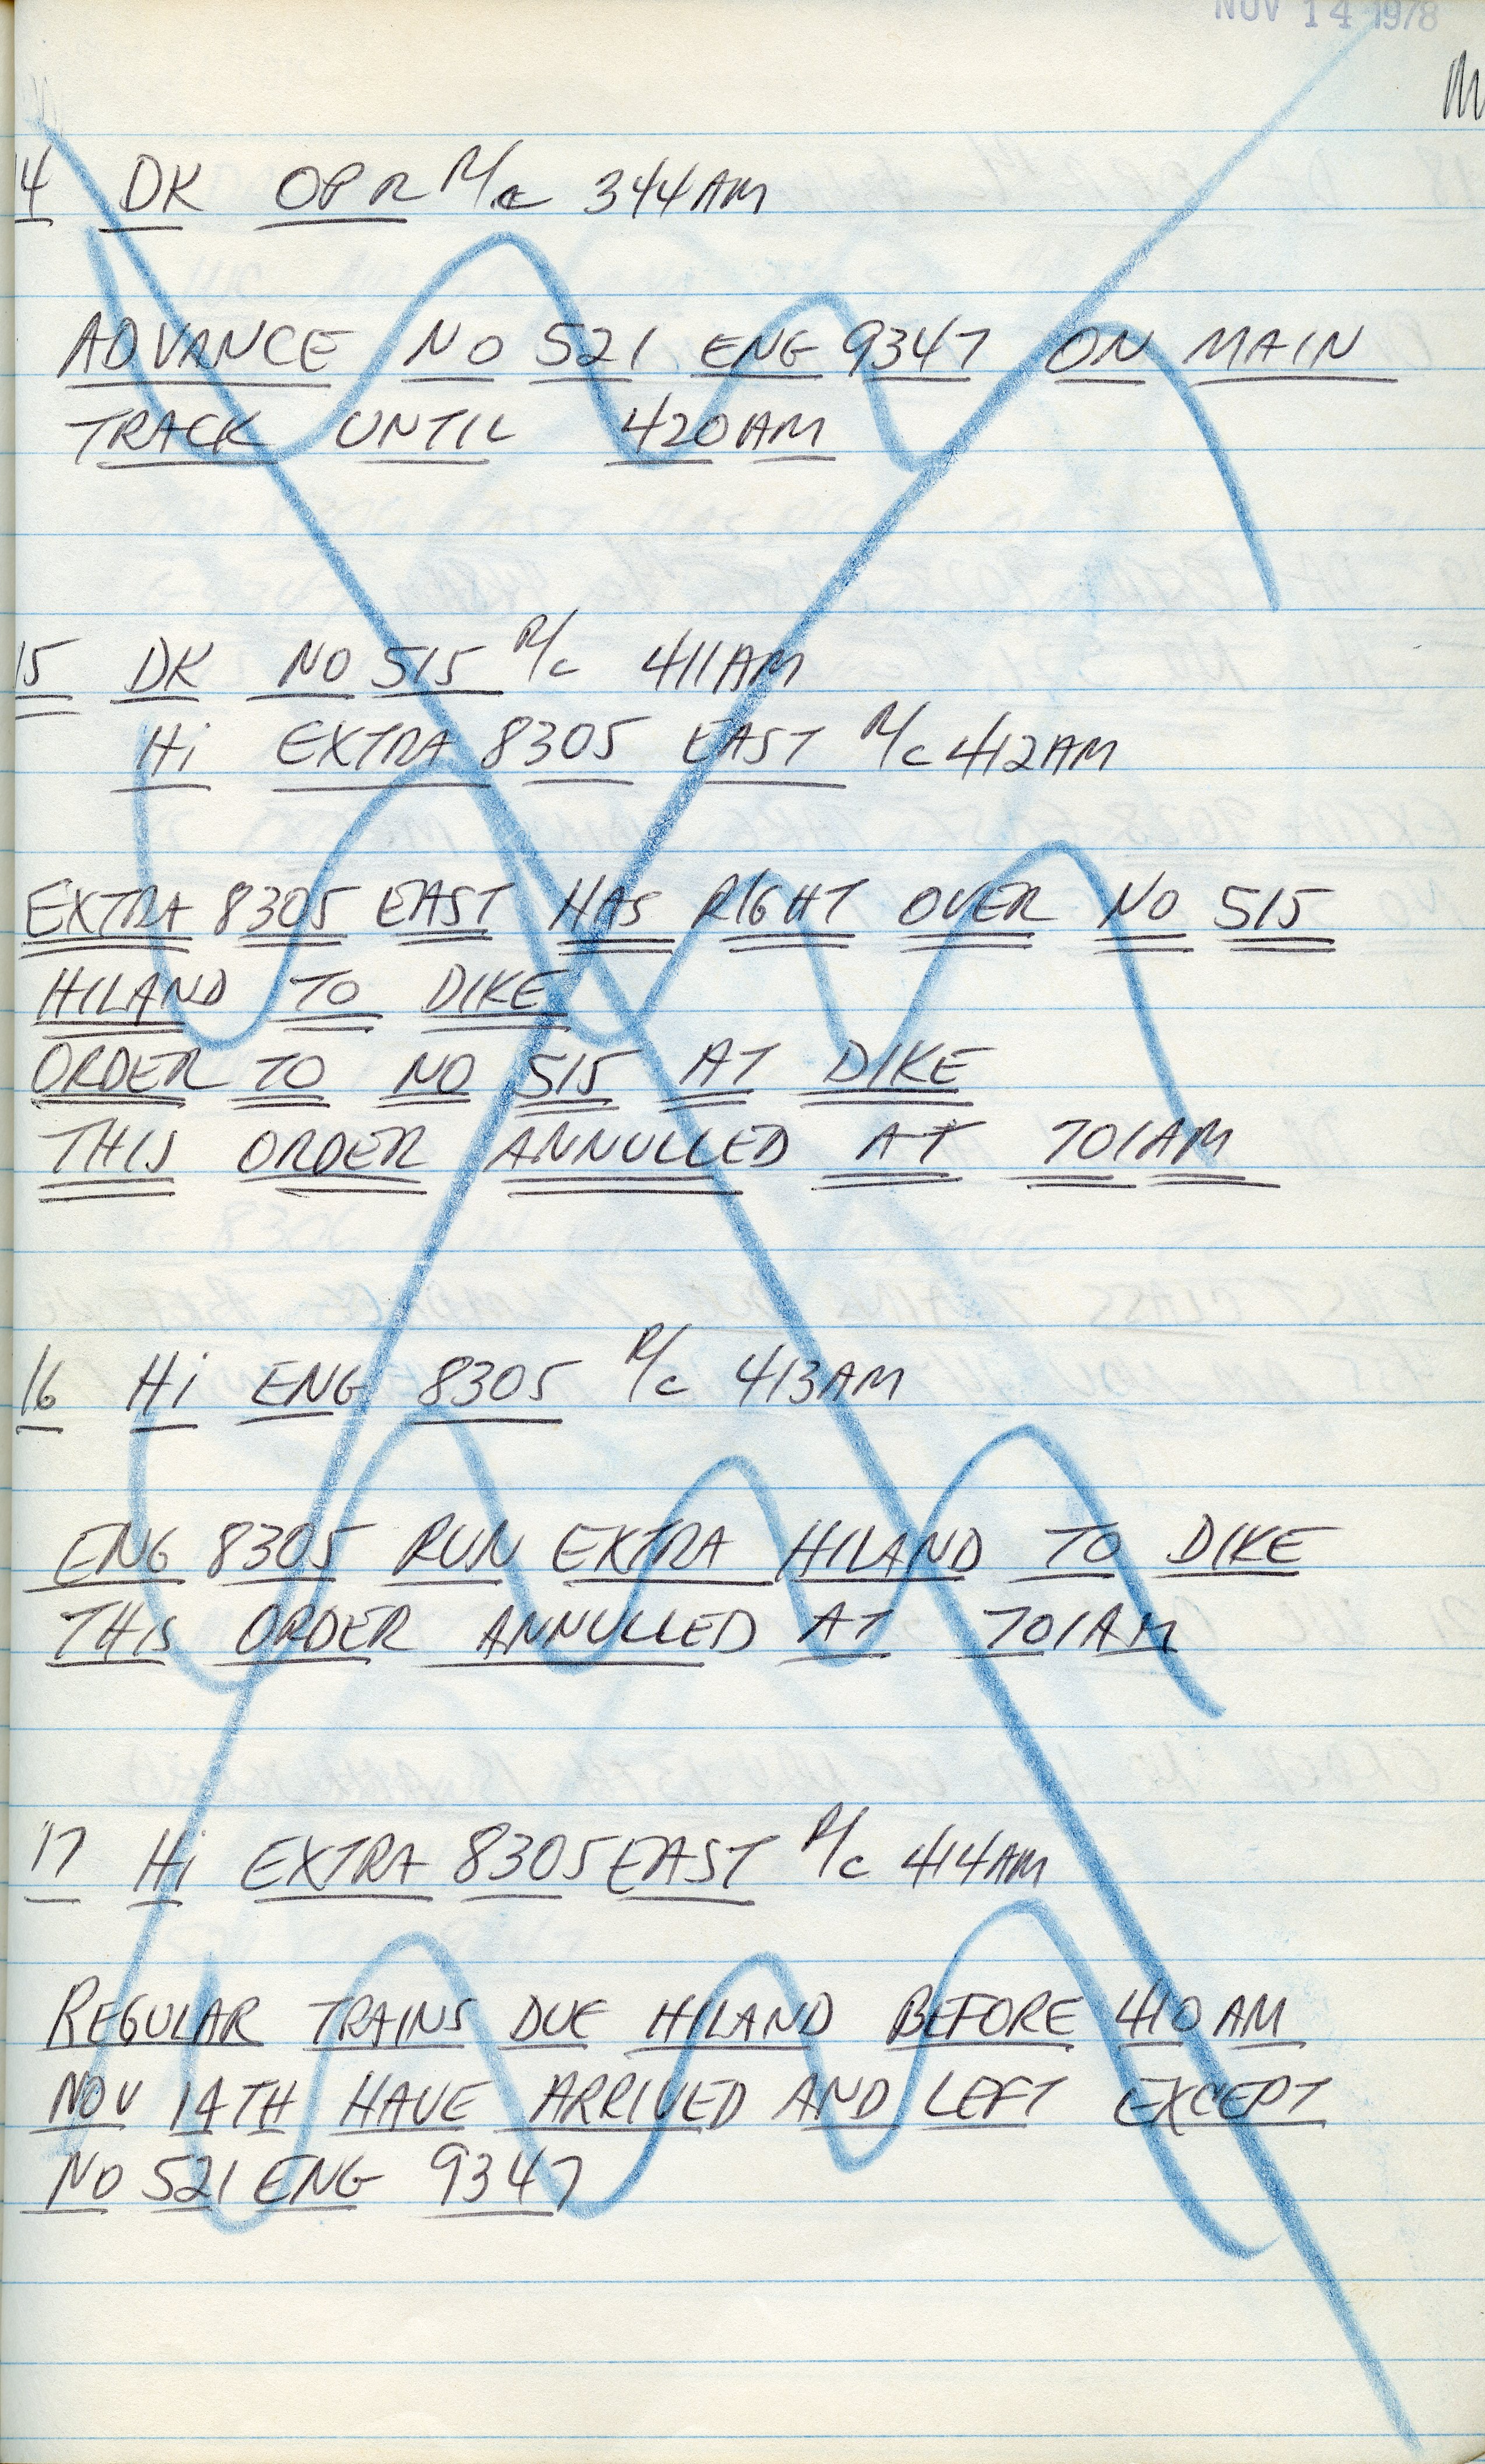 NOV 14 1978
14 DK OPR M/c 344AM
ADVANCE NO 521 ENG 9347 ON MAIN
TRACK UNTIL 420AM
15 DK NO 515 M/c 411AM
Hi EXTRA 8305 EAST M/c 412AM
EXTRA 8305 EAST HAS RIGHT OVER NO 515
HILAND TO DIKE
ORDER TO NO 515 AT DIKE
THIS ORDER ANNULLED AT 701AM
16 Hi ENG 8305 M/c 413AM
ENG 8305 RUN EXTRA HILAND TO DIKE
THIS ORDER ANNULLED AT 701AM
17 Hi EXTRA 8305 EAST M/c 414AM
REGULAR TRAINS DUE HILAND BEFORE 410 AM
NOV 14TH HAVE ARRIVED AND LEFT EXCEPT
NO 521 ENG 9347